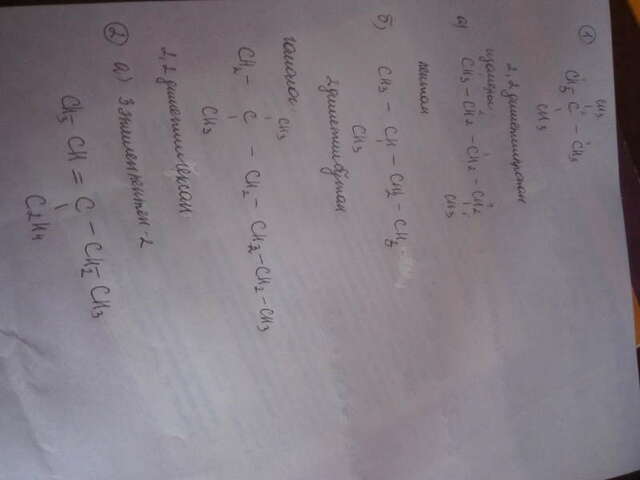 ①
CH3
CH3 – C – CH3
CH3
2,2 диметилпропан
изомеры
а) CH3 – CH2 – CH2 – CH2
CH3
пентан
б) CH3 – CH – CH2 – CH3
CH3
2диметилбутан
гомолог
CH3
CH2 – C – CH2 – CH2 – CH2 – CH3
CH3
2,2 диметилгексан
② а) 3 этилпентен-2
CH3 CH = C – CH2 CH3
C2H4